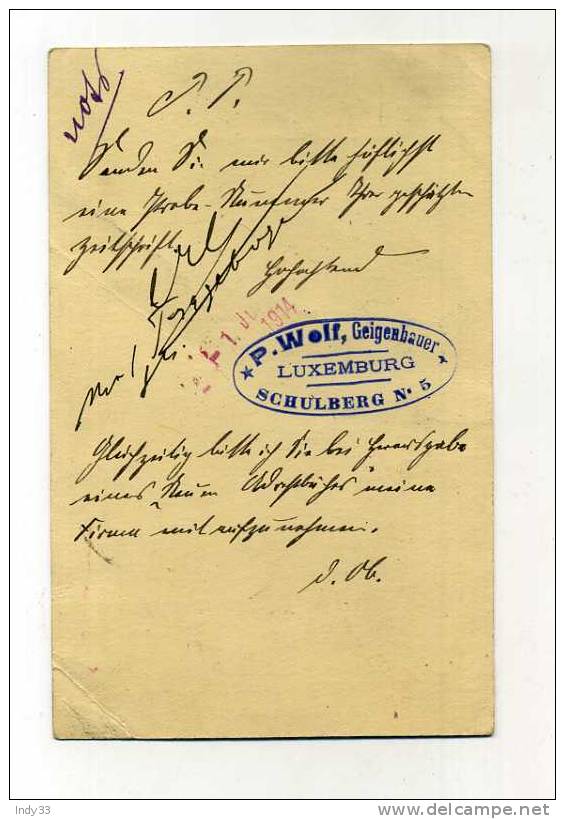 P. P.
Senden Sie mir bitte höflichst
eine Probe-Nummer Ihrer geschätzten
Zeitschrift.
Hochachtend
1 JU 1914
P. Wolff, Geigenbauer
LUXEMBURG
SCHULBERG No 5
Gleichzeitig bitte ich Sie bei Herausgabe
eines Neuen Adreßbuches meine
Firma mit aufzunehmen.
d. Ob.
Indy33
delcampe.net